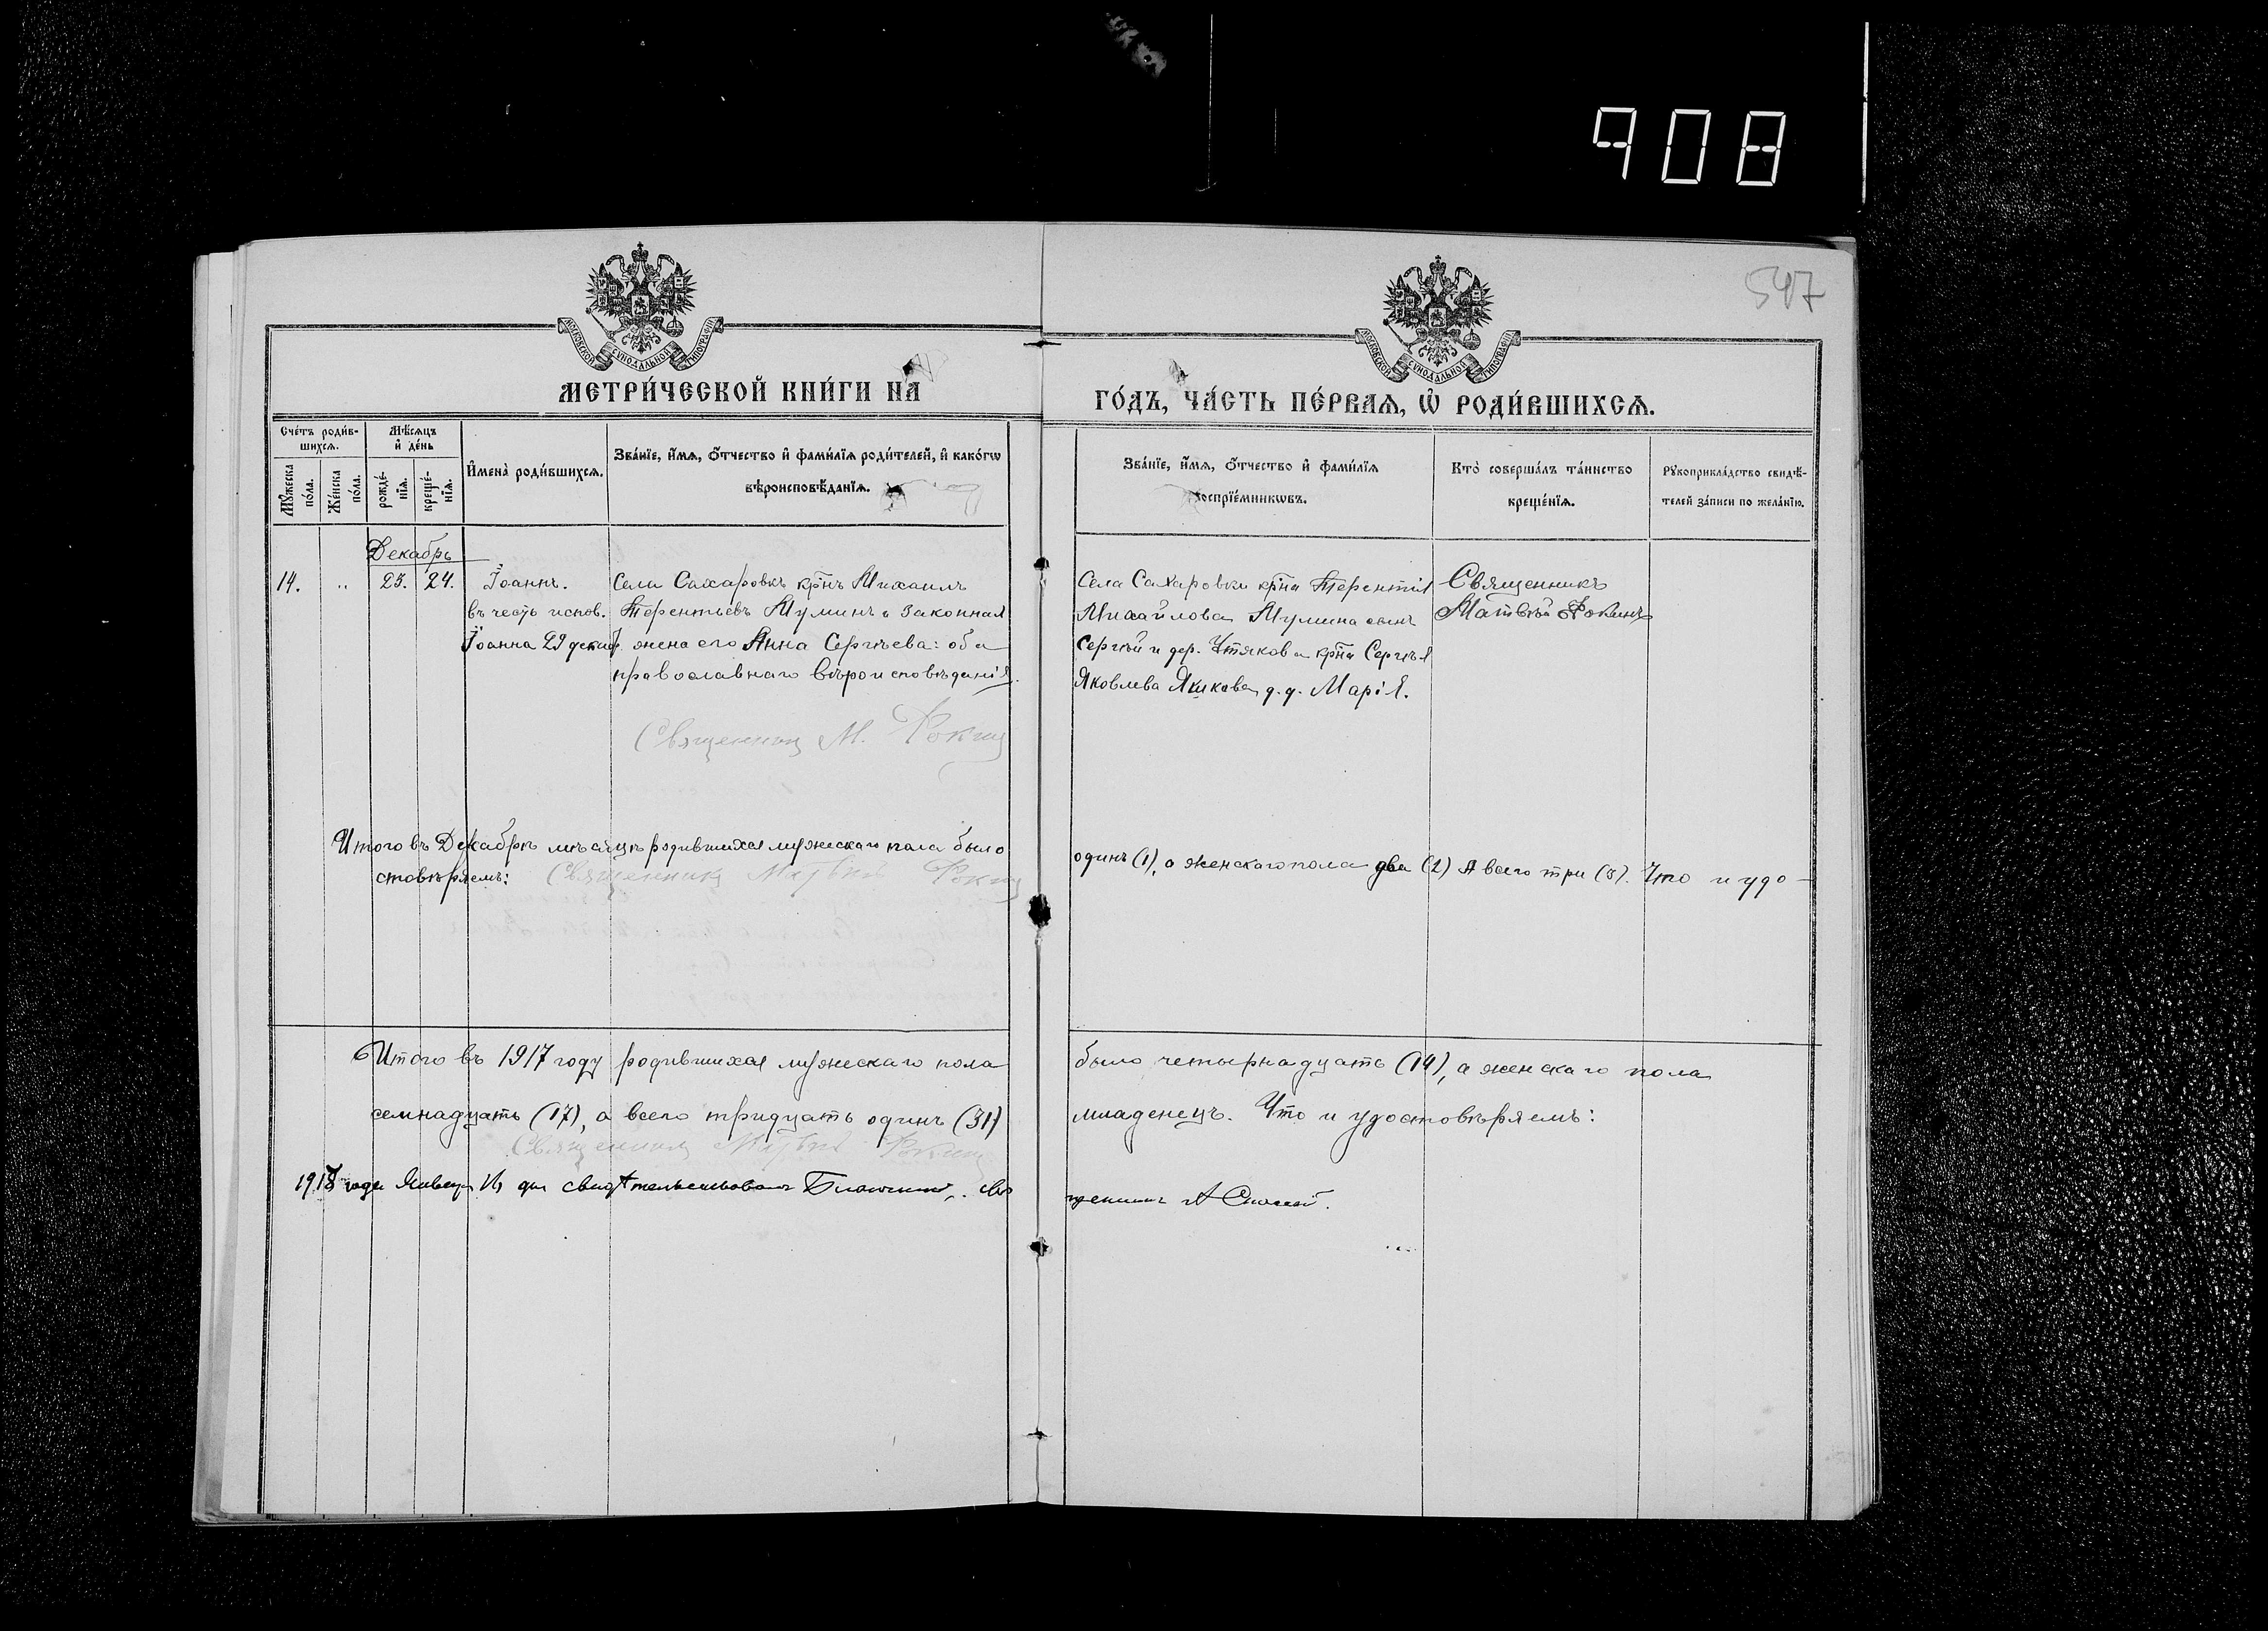 908
547
МОСКОВСКОЙ СѴНОДАЛЬНОЙ ТИПОГРАФІИ
МОСКОВСКОЙ СѴНОДАЛЬНОЙ ТИПОГРАФІИ
МЕТРИ́ЧЕСКОЙ КНИ́ГИ НА
ГО́ДЪ, ЧА́СТЬ ПЕ́РВАѦ, Ѽ РОДИ́ВШИХСѦ.
Сче́тъ роди́в-
шихсѧ.
Мꙋ́жеска
по́ла.
Же́нска
по́ла.
Мѣ́сѧцъ
и҆ де́нь
рожде́-
нїѧ.
креще́-
нїѧ.
И҆мена̀ роди́вшихсѧ.
Зва́нїе, и҆́мѧ, ѻ҆́тчество и҆ фами́лїѧ роди́телей, и҆ како́гѡ
вѣроисповѣ́данїѧ.
Зва́нїе, и҆́мѧ, ѻ҆́тчество и҆ фами́лїѧ
воспрїе́мникѡвъ.
Кто̀ соверша́лъ та́инство
креще́нїѧ.
Рꙋкоприкла́дство свидѣ́-
телей за́писи по жела́нїю.
Декабрь
14. „ 23. 24. Іоаннъ.
въ честь испов.
Іоанна 29 декаб.
Села Сахаровкъ кр̄нъ Михаилъ
Терентьевъ Муминъ и законная
жена его Анна Сергѣева: оба
православнаго вѣроисповѣданія.
Священникъ М. Фокинъ
Села Сахаровки кр̄на Терентія
Михайлова Мумина сынъ
Сергѣй и дер. Утякова кр̄на Сергѣя
Яковлева д. д. Марія.
Священникъ
Матвѣй Фокинъ
Итого въ Декабрѣ мѣсяцѣ родившихся мужескаго пола было
одинъ (1), а женскаго пола два (2) А всего три (3). Что и удо-
стовѣряемъ: Священникъ Матвѣй Фокинъ
Итого въ 1917 году родившихся мужескаго пола
было четырнадцать (14), а женскаго пола
семнадцать (17), а всего тридцать одинъ (31)
младенецъ. Что и удостовѣряемъ:
Священникъ Матвѣй Фокинъ
1918 года Января 16 дня свидѣтельствовалъ Благочинный, свя
щенникъ А